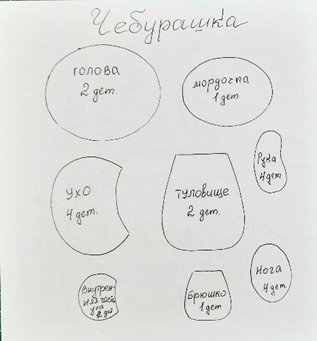 Чебурашка
голова
2 дет.
мордочка
1 дет.
Рука
4 дет
ухо
4 дет.
туловище
2 дет.
Внутрен-
няя часть
уха
2 дет
Брюшко
1 дет.
Нога
4 дет